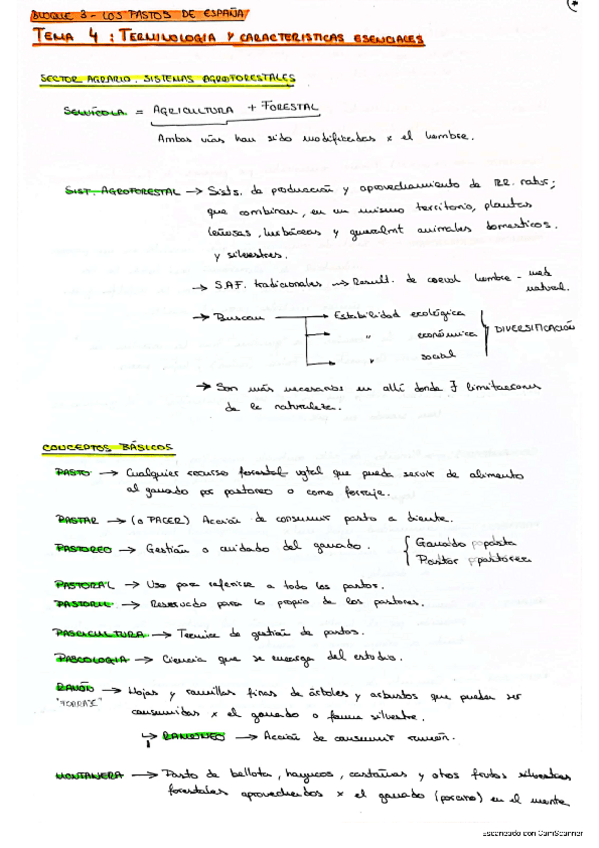 BLOQUE 3 - LOS PASTOS DE ESPAÑA
TEMA 4: TERMINOLOGIA Y CARACTERISTICAS ESENCIALES
SECTOR AGRARIO. SISTEMAS AGROFORESTALES
= AGRICULTURA + FORESTAL
Ambas vías han sido modificadas x el hombre.
SIST. AGROFORESTAL → Sists. de producción y aprovechamiento de RR. natur;
que combinan, en un mismo territorio, plantas
leñosas, herbáceas y generalmt animales domesticos.
y silvestres.
→ S.A.F. tradicionales → Result. de coevol hombre - med
natural.
→ Buscan → Estabilidad ecológica
" económica
" social
DIVERSIFICACIÓN
→ Son más necesarios en allí donde ∃ limitaciones
de la naturaleza.
CONCEPTOS BÁSICOS
PASTO → Cualquier recurso forestal vgtal que pueda servir de alimento
al ganado por pastoreo o como forraje.
PASTAR → (o PACER) Acción de consumir pasto a diente.
PASTOREO → Gestión o cuidado del ganado. { Ganado pasta
Pastor pastorea
PASTORAL → Uso para referirse a todo los pastos.
PASTORIL → Reservado para lo propio de los pastores.
PASCICULTURA → Tecnica de gestión de pastos.
PASCOLOGIA → Ciencia que se encarga del estudio.
RAMÓN → Hojas y ramillas finas de árboles y arbustos que puedan ser
consumidas x el ganado o fauna silvestre.
↳ RAMONEO → Acción de consumir ramón.
MONTANERA → Pasto de bellota, hayucos, castañas y otros frutos silvestres
forestales aprovechados x el ganado (porcino) en el monte
Escaneado con CamScanner